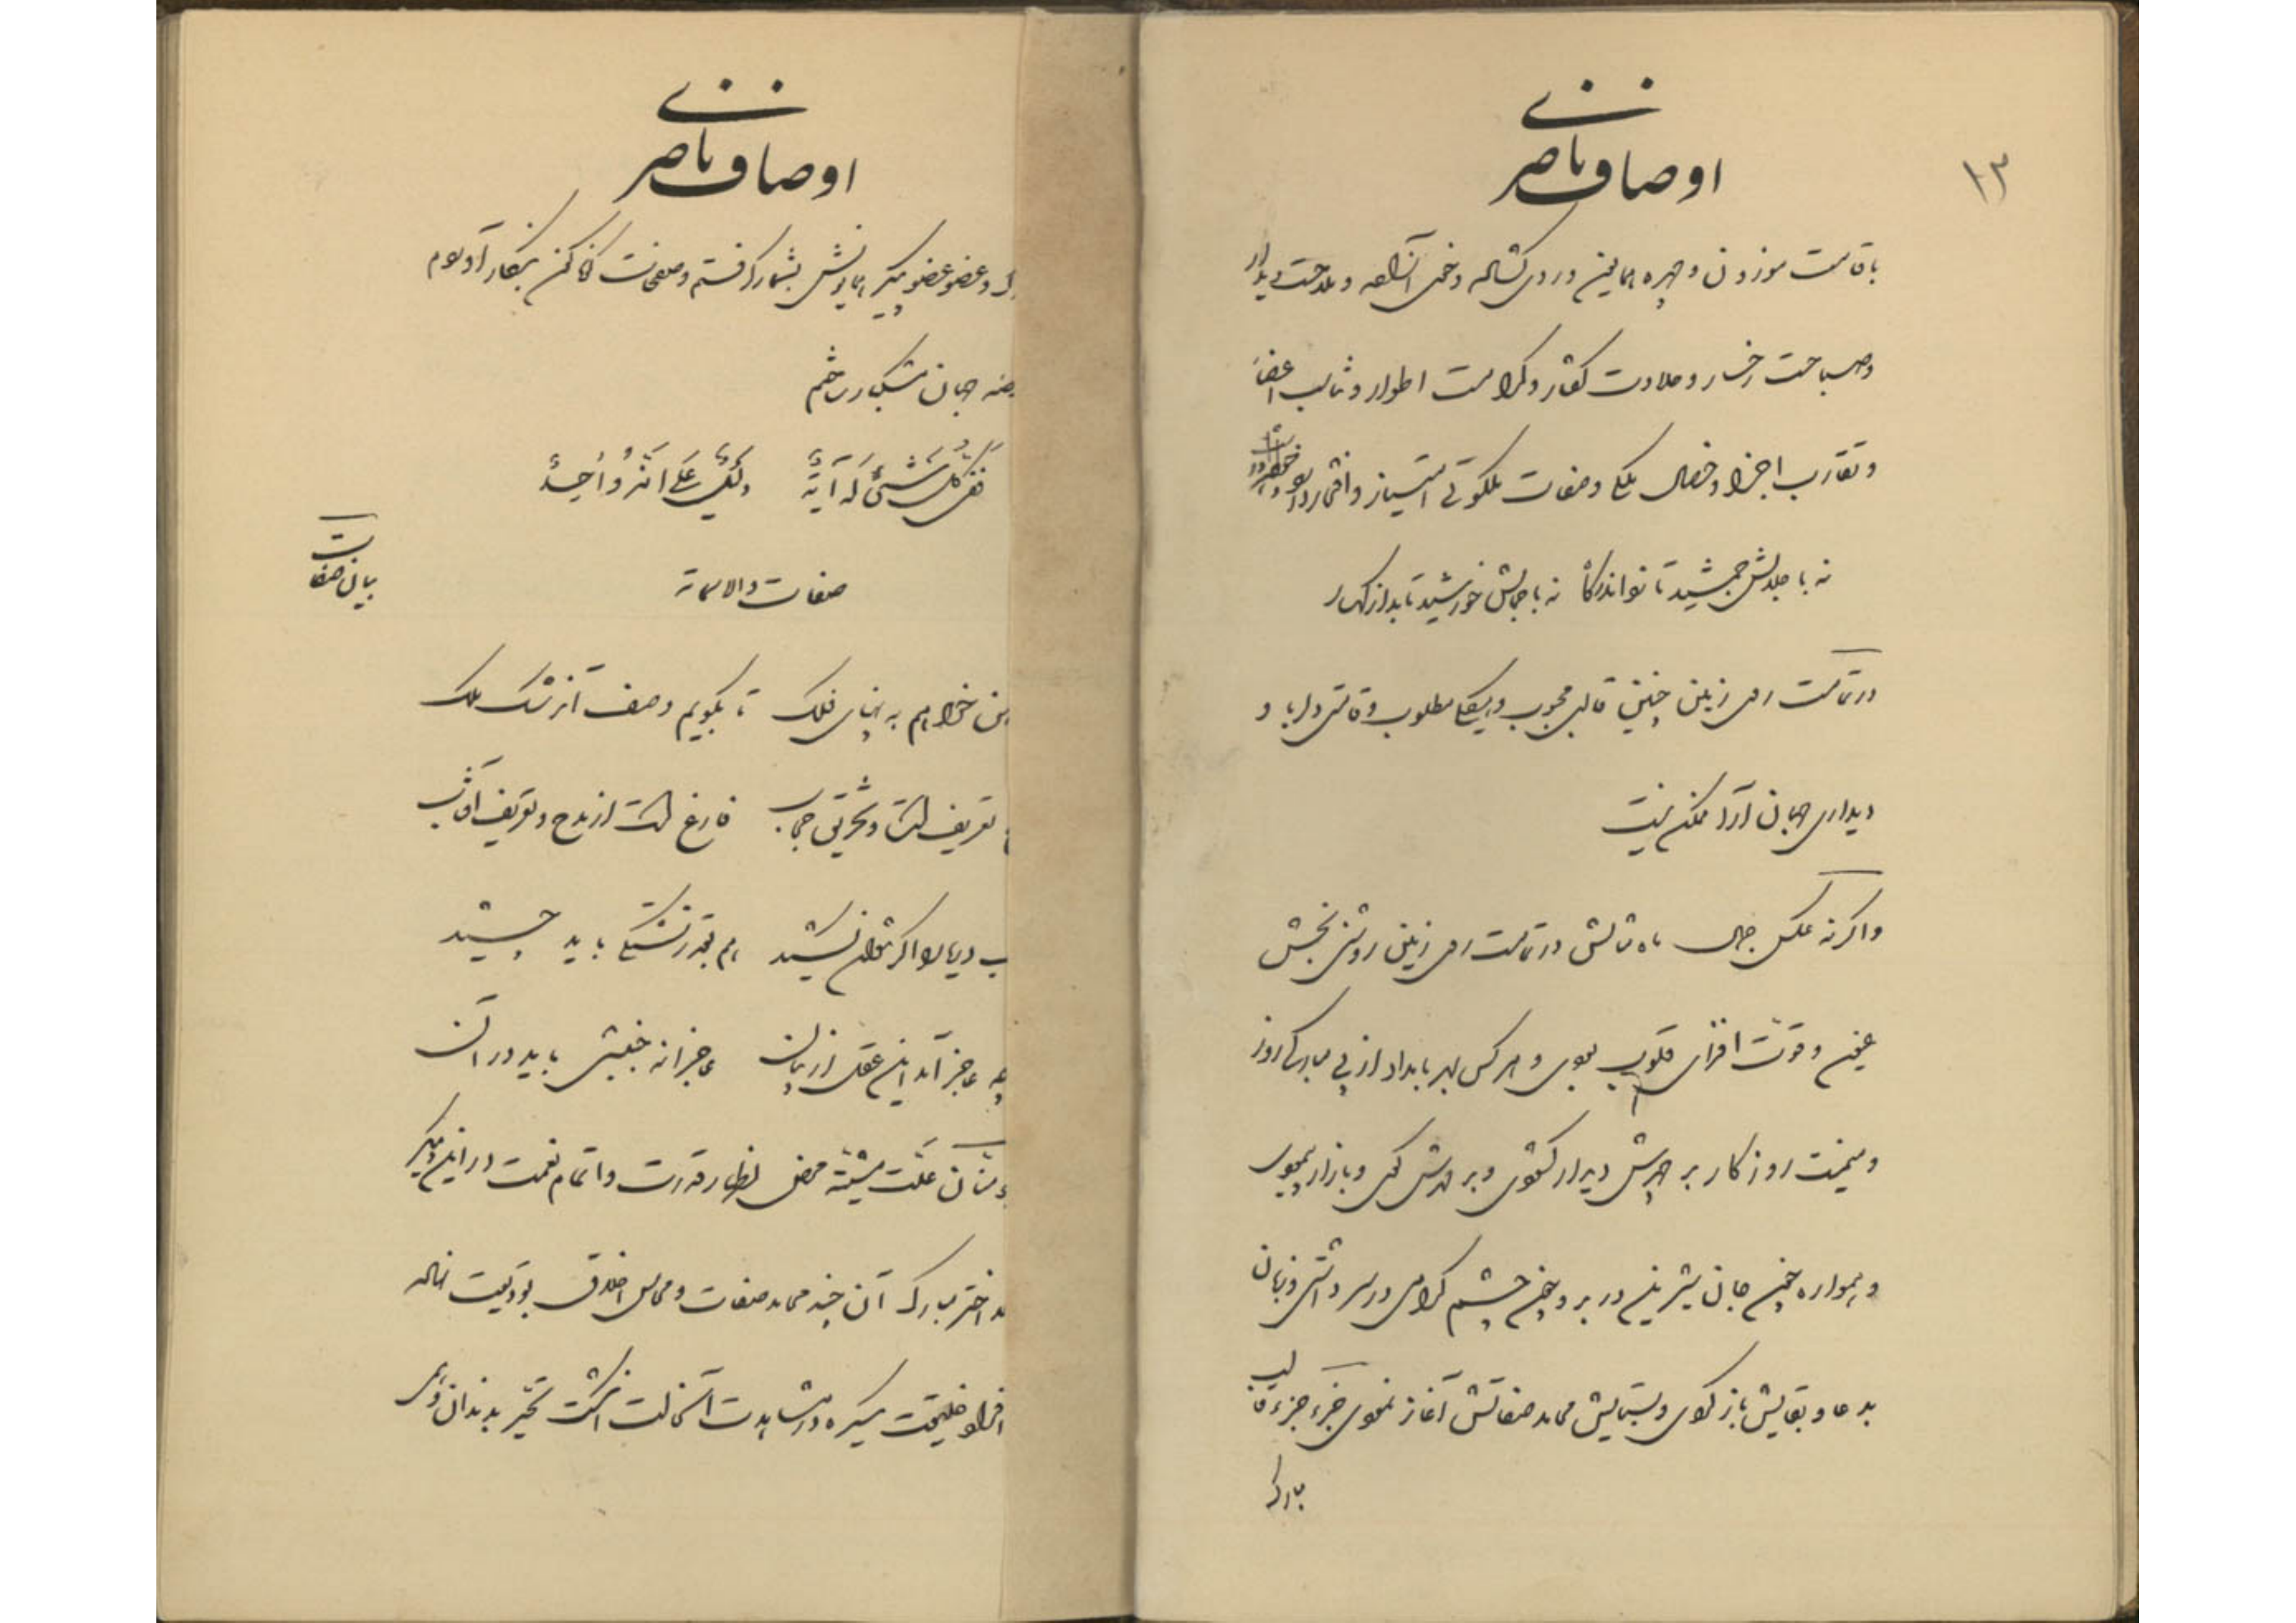 ۱۳
اوصاف ناصری
با قامت موزون و چهره همایون و روی گشاده و خوی آزاده و ملاحت دیدار
و صباحت رخسار و حلاوت گفتار و کرامت اطوار و تناسب اعضا
و تقارب اجزا و خصال ملکی و صفات ملکوتی امتیاز و افتخار
نه با جلالش جمشید تا تواند گاه نه با جمالش خورشید تابد از کهسار
در تمامت روی زمین چنین قالبی محبوب و هیکلی مطلوب و قامتی دلربا و
دیداری جهان آرا ممکن نیست
و اگر نه عکس جمال ماه مثالش در تمامت روی زمین روشنی بخش
عیون و قوت افزای قلوب بودی و هر کس هر بامداد از پی مبارکی روز
و میمنت روزگار بر چهرش دیدار گشودی و بر مهرش کوی و بازار پیمودی
و همواره چون جان شیرین در بر و چون چشم گرامی در سر داشتی و زبان
بدعا و بقایش باز کردی و بستایش محامد صفاتش آغاز نمودی جزء جزء قالب
مبارک
اوصاف ناصری
و عضو عضو پیکر همایونش بشمار گرفتم و صفحات کن بنگار آوردم
جهان مشکبار ساختم
فَفی کُلِّ شَیءٍ لَهُ آیَةٌ تَدُلُّ عَلی اَنَّهُ واحِدٌ
بیان صفات
صفات والاسمات
خواهم به پهنای فلک تا بگویم وصف آن رشک ملک
تعریف است و تخریق حجاب فارغ است از مدح و تعریف آفتاب
آب دریا را اگر نتوان کشید هم بقدر تشنگی باید چشید
چه عاجز آمد این عقل از بیان عاجزانه جنبشی باید در آن
علت مشیته محض اظهار قدرت و اتمام نعمت در این پیکر
اختر مبارک آن چند محامد صفات و محاسن اخلاق بودیعت نهاده
افراد خلیقت یکسره در مشاهدت آنحالت انگشت تحیر بدندان